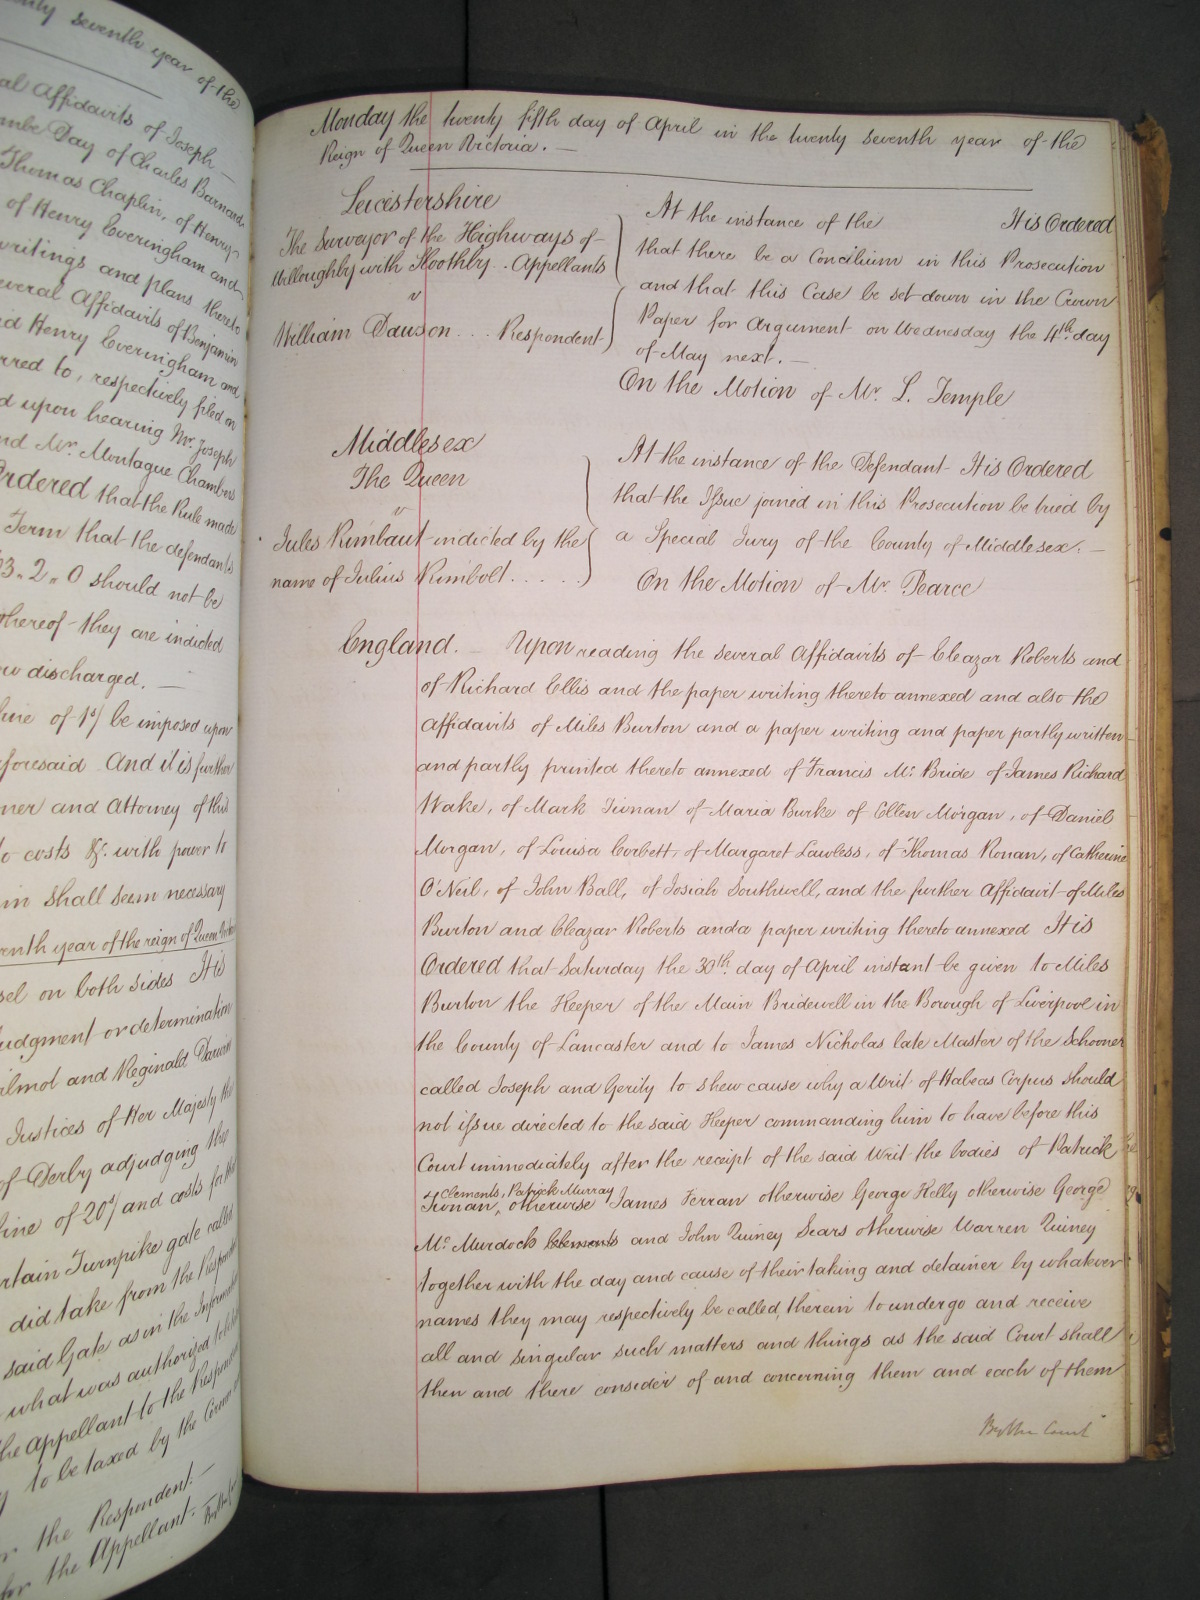 enty seventh year of the
al Affidavits of Joseph
mbe Day of Charles Barnard
Thomas Chaplin, of Henry
of Henry Everingham and
writings and plans thereto
everal Affidavits of Benjamin
id Henry Everingham and
rred to, respectively filed on
d upon hearing Mr. Joseph
nd Mr. Montague Chambers
Ordered that the Rule made
Term that the defendants
3 „ 2 „ 0 should not be
thereof they are indicted
ow discharged. —
fine of 1s/ be imposed upon
foresaid And it is further
ner and Attorney of this
to costs &c. with power to
in shall seem necessary
enth year of the reign of Queen Victoria
sel on both sides It is
udgment or determination
ilmot and Reginald Darwin
Justices of Her Majesty the
of Derby adjudging the
fine of 20s/ and costs for the
rtain Turnpike gate called
did take from the Respondent
said Gate as in the Information
what was authorized to be
the Appellant to the Respondent
to be taxed by the Coroner
r the Respondent. —
for the Appellant. —
Monday the twenty fifth day of April in the twenty seventh year of the
Reign of Queen Victoria. —
Leicestershire
The Surveyor of the Highways of
Willoughby with Sloothby . . Appellants
v
William Dawson . . . Respondent
At the instance of the It is Ordered
that there be a Concilium in this Prosecution
and that this Case be set down in the Crown
Paper for Argument on Wednesday the 4th. day
of May next. —
On the Motion of Mr. L. Temple
Middlesex
The Queen
v
Jules Rimbaut indicted by the
name of Julius Rimbolt . . . . .
At the instance of the Defendant It is Ordered
that the Issue joined in this Prosecution be tried by
a Special Jury of the County of Middlesex. —
On the Motion of Mr. Pearce
England. — Upon reading the several Affidavits of Eleazar Roberts and
of Richard Ellis and the paper writing thereto annexed and also the
Affidavits of Miles Burton and a paper writing and paper partly written
and partly printed thereto annexed of Francis Mc. Bride of James Richard
Wake, of Mark Tivnan of Maria Burke of Ellen Morgan, of Daniel
Morgan, of Louisa Corbett, of Margaret Lawless, of Thomas Ronan, of Catherine
O'Neil, of John Ball, of Josiah Southwell, and the further Affidavit of Miles
Burton and Eleazar Roberts and a paper writing thereto annexed It is
Ordered that Saturday the 30th. day of April instant be given to Miles
Burton the Keeper of the Main Bridewell in the Borough of Liverpool in
the County of Lancaster and to James Nicholas late Master of the Schooner
called Joseph and Gerity to shew cause why a Writ of Habeas Corpus should
not issue directed to the said Keeper commanding him to have before this
Court immediately after the receipt of the said Writ the bodies of Patrick
Clements, Patrick Murray
Tivnan, otherwise James Ferran otherwise George Kelly otherwise George
Mc. Murdock Clements and John Quiney Sears otherwise Warren Quiney
together with the day and cause of their taking and detainer by whatever
names they may respectively be called, therein to undergo and receive
all and singular such matters and things as the said Court shall
then and there consider of and concerning them and each of them
By the Court